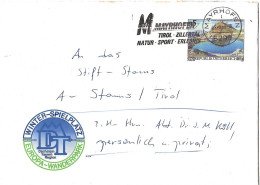 MAYRHOFEN
M MAYRHOFEN
TIROL · ZILLERTAL
NATUR · SPORT · ERLEBNIS
REPUBLIK ÖSTERREICH
An das
Stift - Stams
A - Stams / Tirol
z. H. Hrn. Abt. Dr. J. M.
persönlich u. privat!
WINTER-SPIELPLATZ
EUROPA-WANDERPARK